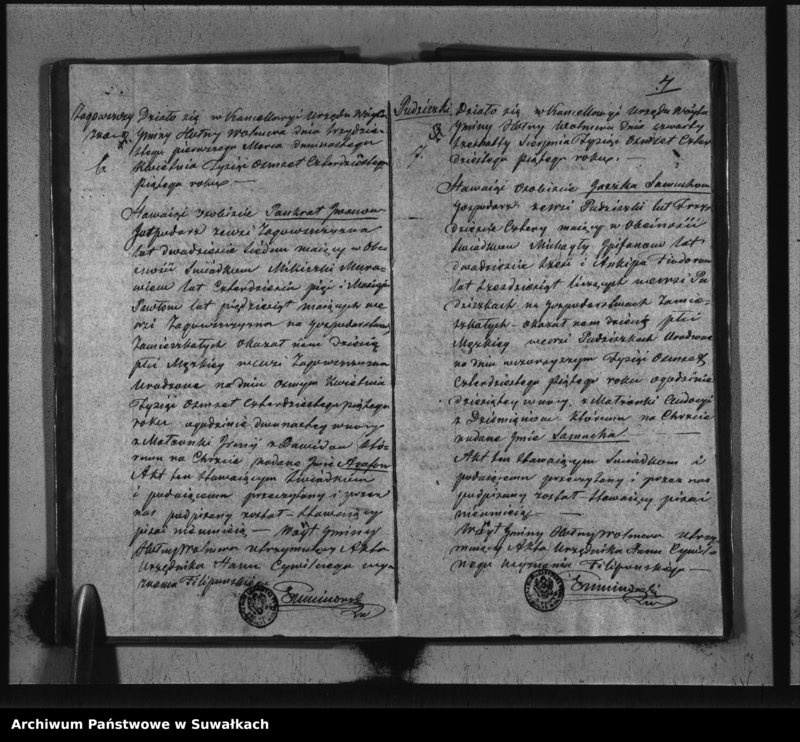 Zagowerszczy
zna
6.
Działo się w Kancellaryi Urzędu Wójta
Gminy Hołny Wolmera dnia trzydzie-
stego pierwszego Marca dwunastego
Kwietnia Tysiąc Osmset Czterdziestego
piątego roku —
Stawaiąc osobiście Pankrat Iwanow
Gospodarz zewsi Zagowerszczyzna
lat dwadzieścia siedm maiący w Obe
cności Swiadków Mikiczki Mura-
wiew lat Czterdzieścia pięć i
Pawłow lat pięćdziesiąt maiących we
wsi Zagowerszczyzna na gospodarstwie
Zamieszkałych okazał nam Dziecię
płci Męzkiey wewsi Zagowerszczyzna
Urodzone na dniu osmym Kwietnia
Tysiąc Osmset Czterdziestego piątego
roku ogodzinie dwunastey w nocy
z Małżonki z Dawidow któ-
remu na Chrzcie nadano Jmie Agafon
Akt ten stawaiącym Swiadkom
i podaiącemu przeczytany i przez
nas podpisany został — stawaiący
pisać nieumieią — Wóyt Gminy
Hołny Wolmera utrzymuiący Akta
Urzędnika Stanu Cywilnego wyz-
znania Filipońskiego
7
Pudziszki
7.
Działo się w Kancellaryi Urzędu Wójta
Gminy Hołny Wolmera dnia czwarty
szesnasty Sierpnia Tysiąc Osmset Czter
dziestego piątego roku. —
Stawaiąc osobiście Goszka
Gospodarz zewsi Pudziszki lat Trzy-
dzieście Cztery maiący w Obecności
Swiadków Michayły Epifanow lat
dwadzieścia sześć i Ankipa Fiodorow
lat sześćdziesiąt liczących wewsi Pu
dziszkach na gospodarstwach Zamie-
szkałych — okazał nam dziecię płci
Męzkiey wewsi Pudziszkach Urodzone
na dniu wczorayszym Tysiąc Osmset
Czterdziestego piątego roku ogodzinie
dziesiątey w nocy. z Małżonki Audocyi
z któremu na Chrzcie
nadane Jmie Samucha
Akt ten stawaiącym Swiadkom i
podaiącemu przeczytany i przez nas
podpisany został — stawaiący pisać
nieumieią —
Wóyt Gminy Hołny Wolmera Utrzy
muiący Akta Urzędnika Stanu Cywil-
nego Wyznania Filipońskiego —
Archiwum Państwowe w Suwałkach